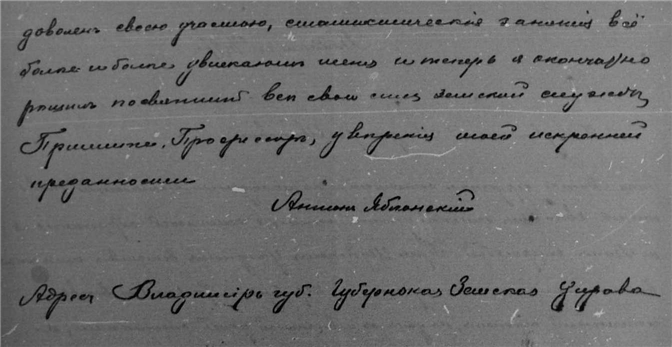 доволенъ своею участью, статистическiя занятiя всё
болѣе и болѣе увлекаютъ меня и теперь я окончат/но
рѣшилъ посвятить все свои силы земской службѣ
Примите, Профессоръ, увѣренiя моей искренней
преданности
Антонъ Яблонскiй
Адресъ Владимiръ губ. Губернская Земская Управа